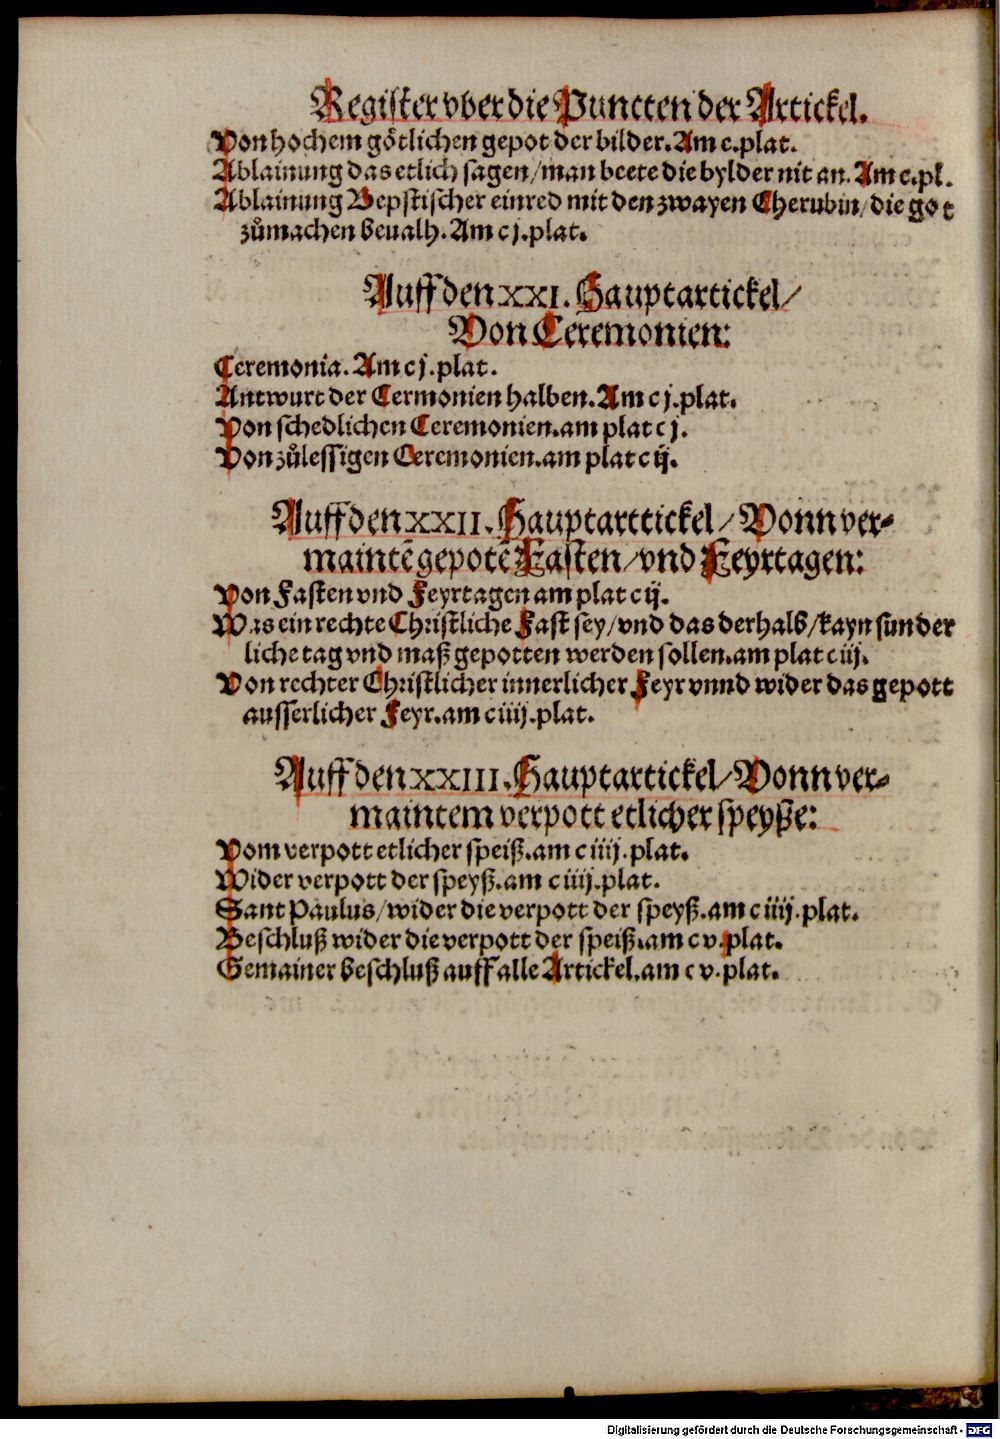 Register vber die Puncten der Artickel.
Von hochem götlichen gepot der bilder. Am c.plat.
Ablainung das etlich sagen/man beete die bylder nit an. Am c.pl.
Ablainung Bepstischer einred mit den zwayen Cherubin/die got
zůmachen beualh. Am cj.plat.
Auff den XXI. Hauptartickel/
Von Ceremonien:
Ceremonia. Am cj.plat.
Antwurt der Cermonien halben. Am cj.plat.
Von schedlichen Ceremonien.am plat cj.
Von zůlessigen Ceremonien.am plat cij.
Auff den XXII. Hauptarttickel/Vonn ver⸗
maintē gepotē Fasten/vnd Feyrtagen:
Von Fasten vnd Feyrtagen am plat cij.
Was ein rechte Christliche Fast sey/vnd das derhalb/kayn sunder
liche tag vnd maß gepotten werden sollen.am plat ciij.
Von rechter Christlicher innerlicher Feyr vnnd wider das gepott
ausserlicher Feyr.am ciiij.plat.
Auff den XXIII. Hauptartickel/Vonn ver⸗
maintem verpott etlicher speyße:
Vom verpott etlicher speiß.am ciiij.plat.
Wider verpott der speyß.am ciiij.plat.
Sant Paulus/wider die verpott der speyß.am ciiij.plat.
Beschluß wider die verpott der speiß.am cv.plat.
Gemainer beschluß auff alle Artickel.am cv.plat.
Digitalisierung gefördert durch die Deutsche Forschungsgemeinschaft - DFG